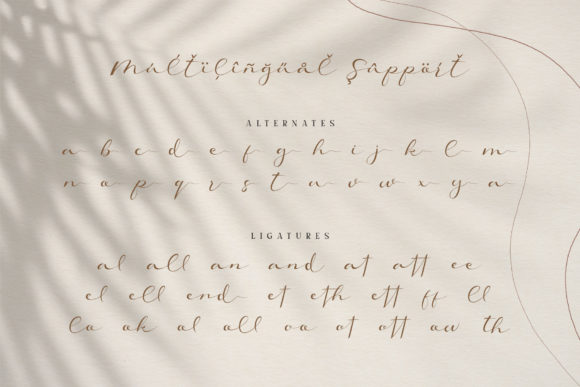 Múlťïļîñğüåľ Şûppöřť
ALTERNATES
a b c d e f g h i j k l m
n o p q r s t u v w x y z
LIGATURES
al all an and at att ee
el ell end et eth ett ff ll
lo ok ol oll oo ot ott ow th